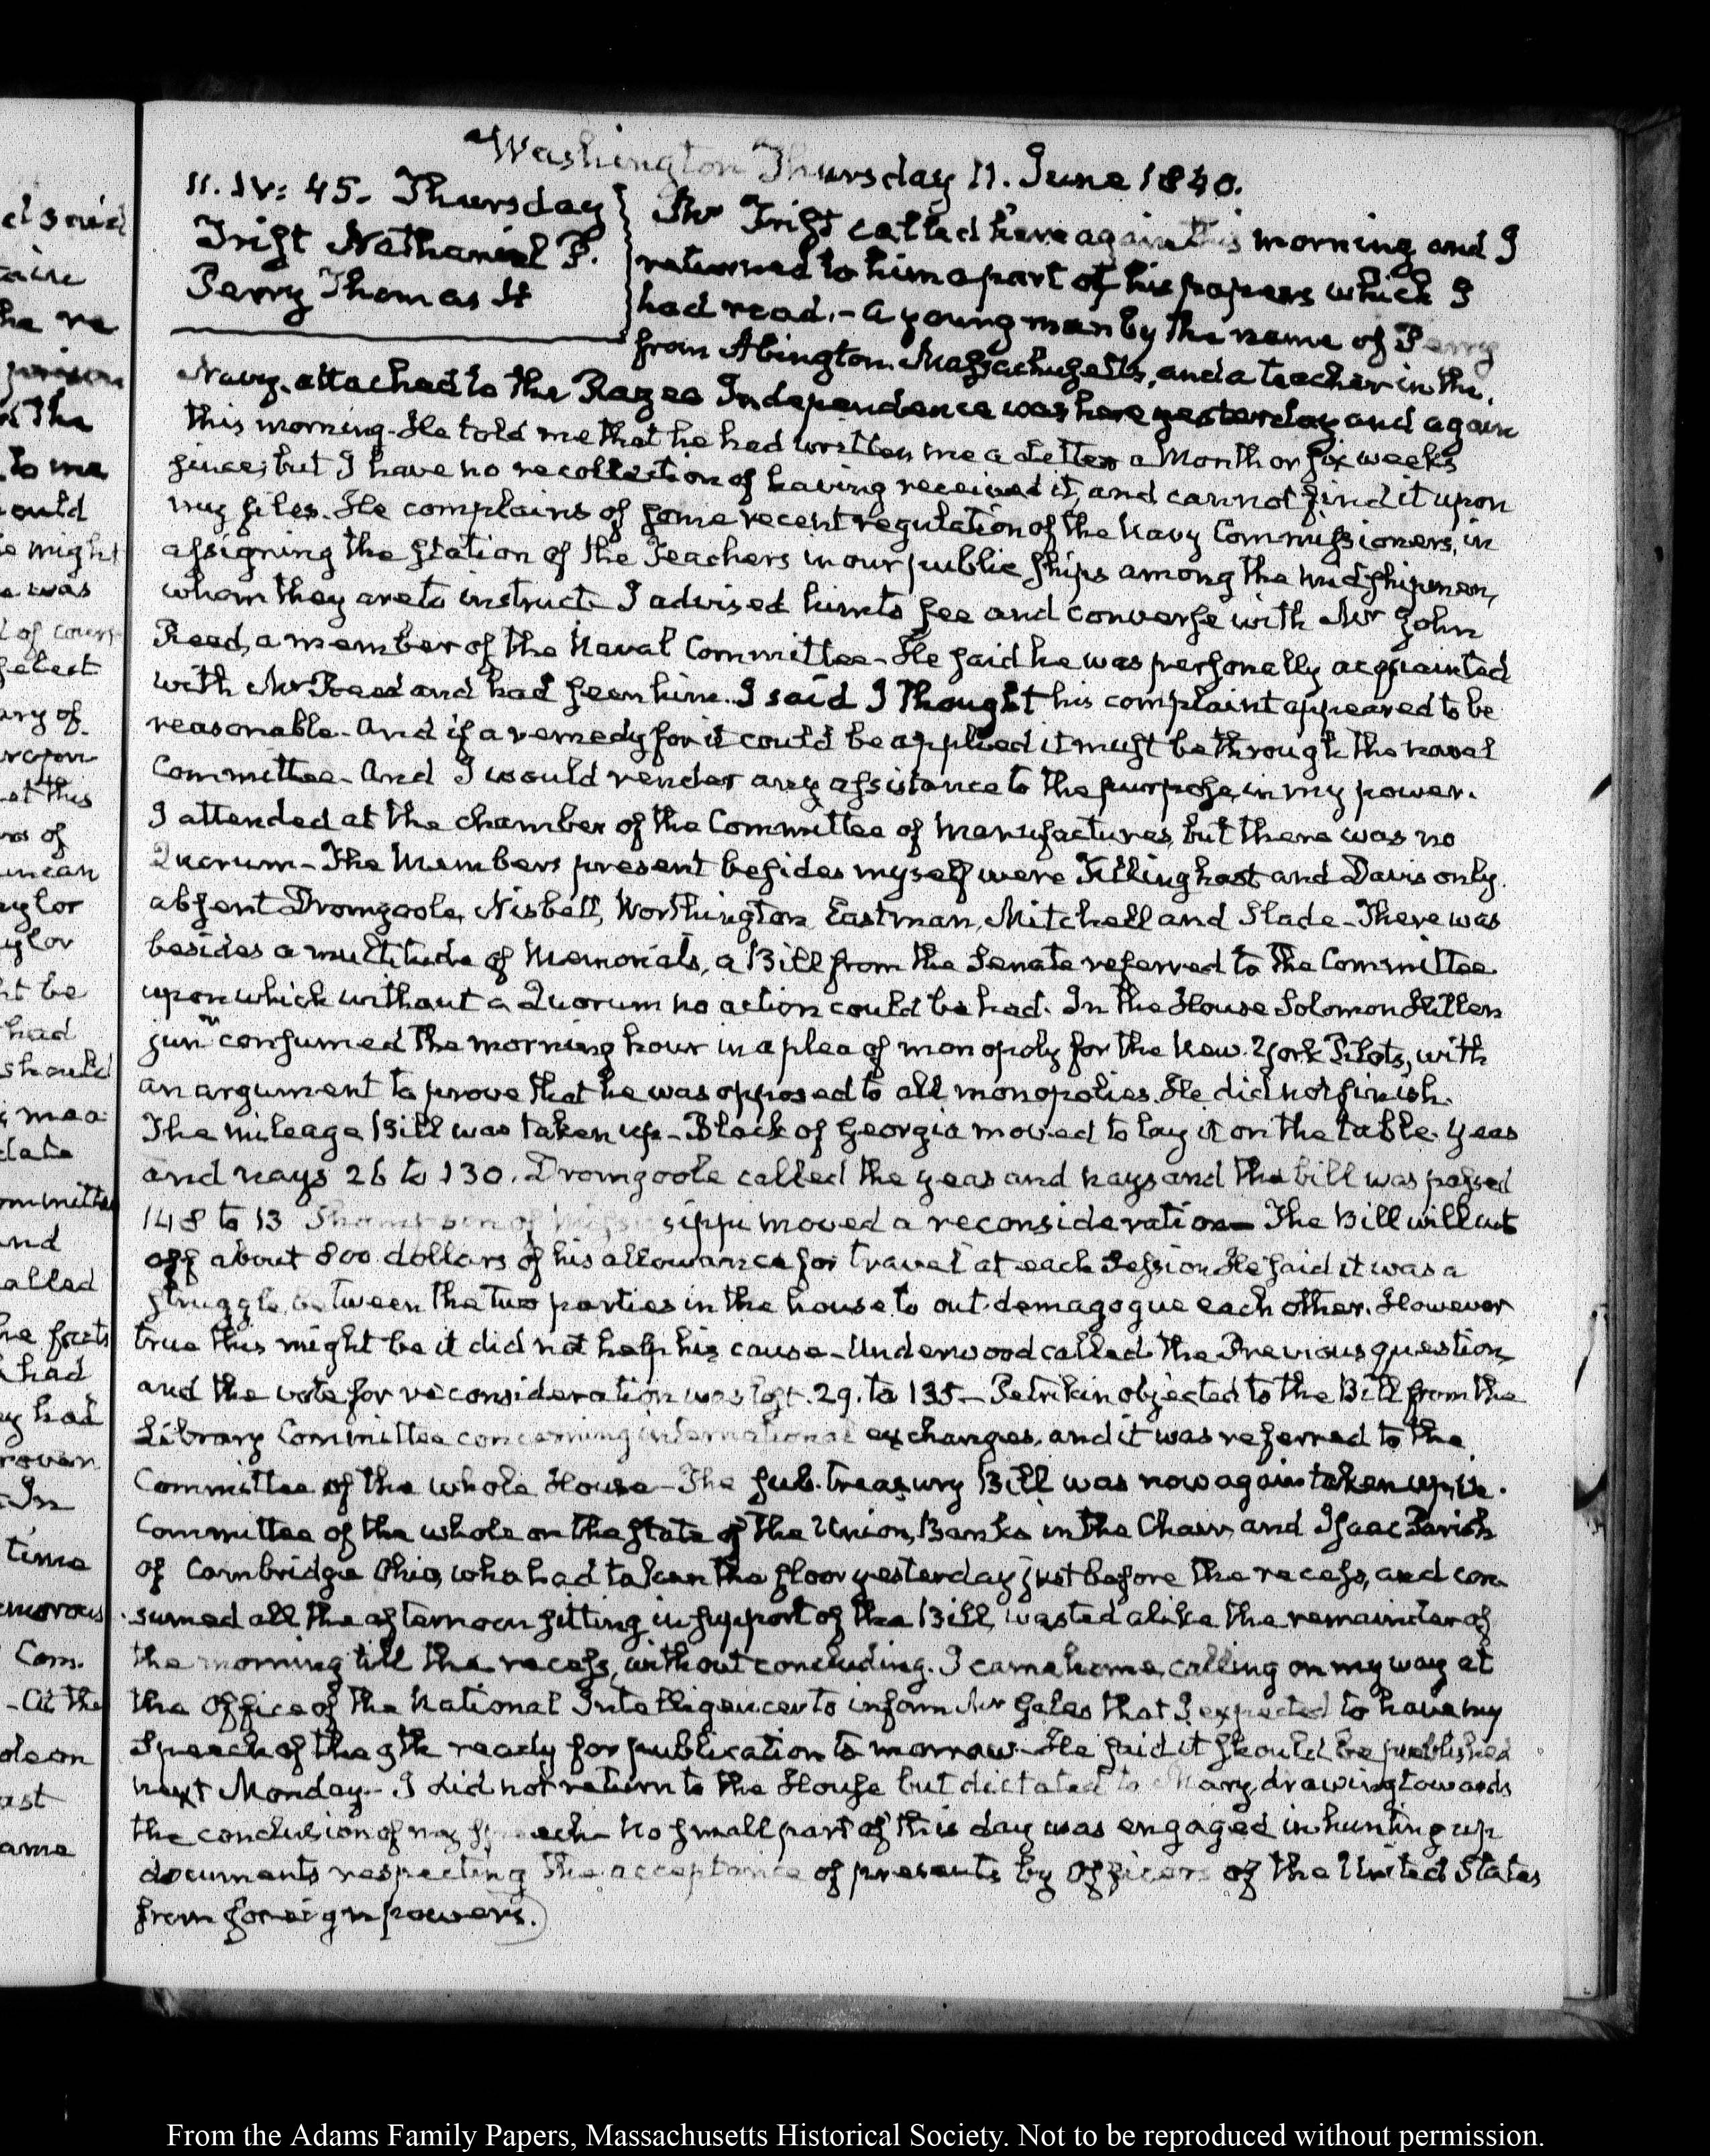 Washington Thursday 11. June 1840.
11. IV: 45. Thursday
Trist Nathaniel P.
Perry Thomas
Mr Trist called here again this morning and I
returned to him a part of his papers which I
had read.- A young man by the name of Perry
from Abington Massachusetts, and a teacher in the
Navy, attached to the Razee Independence was here yesterday and again
this morning- He told me that he had written me a Letter a Month or six weeks
since; but I have no recollection of having received it, and cannot find it upon
my files. He complains of some recent regulation of the Navy Commissioners, in
assigning the station of the Teachers in our public ships among the midshipmen,
whom they are to instruct- I advised him to see and converse with Mr John
Reed, a member of the Naval Committee- He said he was personally acquainted
with Mr Reed and had seen him. I said I thought his complaint appeared to be
reasonable- And if a remedy for it could be applied it must be through the naval
Committee- And I would render any assistance to the purpose, in my power.
I attended at the chamber of the Committee of Manufactures, but there was no
Quorum- The Members present besides myself were Tillinghast and Davis only.
absent Dromgoole, Nisbett, Worthington, Eastman, Mitchell and Slade- There was
besides a multitude of Memorials, a Bill from the Senate referred to the Committee
upon which without a Quorum no action could be had. In the House Solomon Hillen
junr consumed the morning hour in a plea of monopoly for the New-York Pilots, with
an argument to prove that he was opposed to all monopolies. He did not finish.
The mileage Bill was taken up- Black of Georgia moved to lay it on the table. Yeas
and nays 26 to 130. Dromgoole called the yeas and nays and the bill was passed
148 to 13 Thompson of Mississippi moved a reconsideration- The Bill will cut
off about 800 dollars of his allowance for travel at each Session He said it was a
struggle between the two parties in the house to out-demagogue each other. However
true this might be it did not help his cause- Underwood called the Previous question,
and the vote for reconsideration was lost. 29. to 135- Petrikin objected to the Bill from the
Library Committee concerning international exchanges, and it was referred to the
Committee of the whole House- The sub-treasury Bill was now again taken up, in
Committee of the whole on the state of the Union, Banks in the Chair, and Isaac Parish
of Cambridge Ohio, who had taken the floor yesterday just before the recess, and con-
sumed all the afternoon sitting in support of the Bill, wasted alike the remainder of
the morning till the recess, without concluding. I came home, calling on my way at
the Office of the National Intelligencer to inform Mr Gales that I expected to have my
Speech of the 9th ready for publication to-morrow- He said it should be published
next Monday- I did not return to the House but dictated to Mary, drawing towards
the conclusion of my speech- No small part of this day was engaged in hunting up
documents respecting the acceptance of presents by Officers of the United States
from foreign powers.
From the Adams Family Papers, Massachusetts Historical Society. Not to be reproduced without permission.